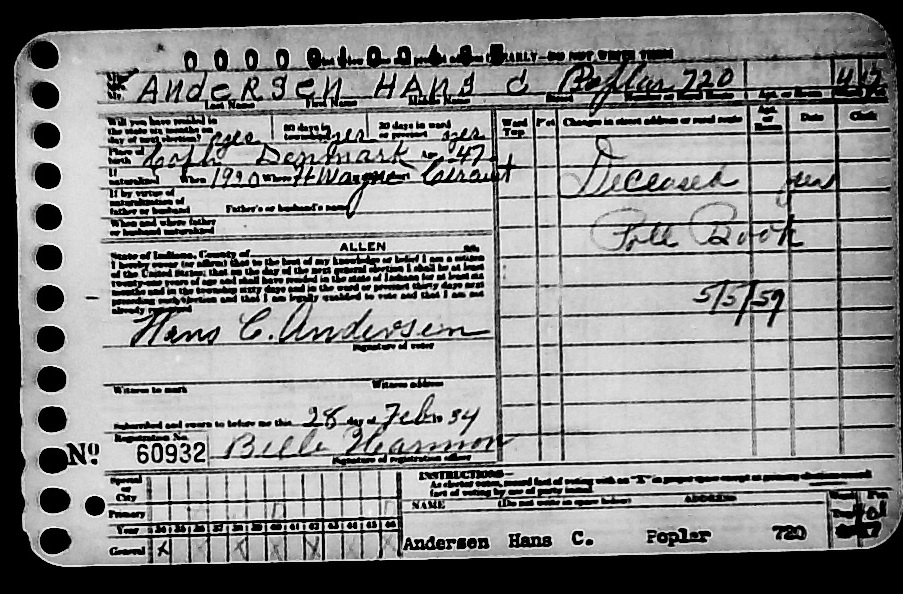 ARLY—DO NOT WRITE THERE
Mr. Andersen Hans C Poplar 720 4 17
Last Name First Name Middle Name Street Number or Rural Route Apt. or Room
Will you have resided in the state six months on day of next election? yes 60 days in township yes 30 days in ward or precinct yes
Ward Twp. Pct. Changes in street address or rural route Apt. or Room Date Clerk
Place of birth Coph Denmark Age 47
If naturalized When 1920 Where Ft Wayne Court Circuit
Deceased
If by virtue of naturalization of father or husband Father's or husband's name
When and where father or husband naturalized
Poll Book
State of Indiana, County of ALLEN ss.
I hereby swear (or affirm) that to the best of my knowledge or belief I am a citizen
of the United States; that on the day of the next general election I shall be at least
twenty-one years of age and shall have resided in the state of Indiana for at least six
months and in the township sixty days and in the ward or precinct thirty days next
preceding such election and that I am legally qualified to vote and that I am not
already registered
5/5/59
Hans C. Andersen
Signature of voter
Witness to mark Witness address
Subscribed and sworn to before me this 28 day of Feb 19 34
Registration No.
No. 60932 Belle Hearmon
Signature of registration officer
INSTRUCTIONS—
As elector votes, record fact of voting with an "X" in proper space except at primary elections record
fact of voting by use of party initial.
Special or City
Primary
NAME (Do not write in space below) ADDRESS Ward Pct.
Year 34 35 36 37 38 39 40 41 42 43 44 45 46
General X X X X X X X
Andersen Hans C. Poplar 720